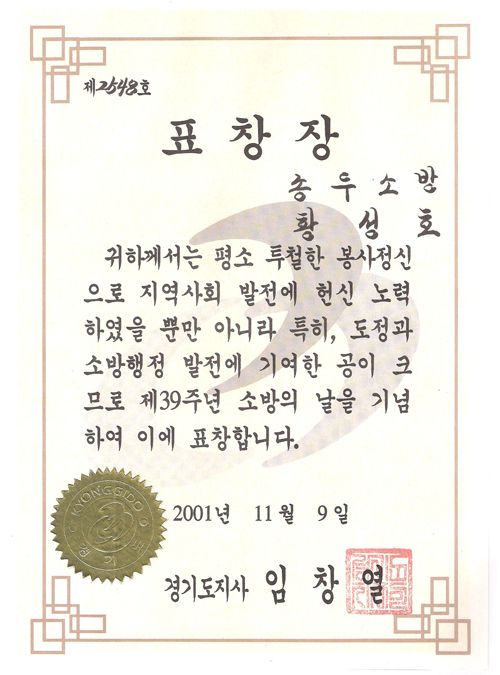 제2548호
표창장
송우소방
황성호
귀하께서는 평소 투철한 봉사정신
으로 지역사회 발전에 헌신 노력
하였을 뿐만 아니라 특히, 도정과
소방행정 발전에 기여한 공이 크
므로 제39주년 소방의 날을 기념
하여 이에 표창합니다.
KYONGGIDO
경기도
2001년 11월 9일
경기도지사 임창열